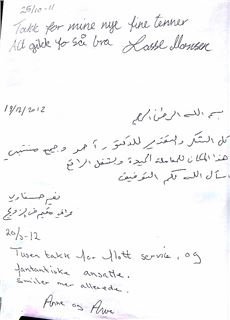 25/10-11
Takk for mine nye fine tenner
Alt gikk så bra Lasse
19/12/2012
بسم الله الرحمن الرحيم
كل الشكر والتقدير للدكتور أحمد وجميع منتسبي
هذا المكان للمعاملة الجيدة والشغل الرائع
أسأل الله لكم التوفيق
20/3-12
Tusen takk for flott service, og
fantastiske ansatte.
Smiler mer allerede.
Anne og Arve